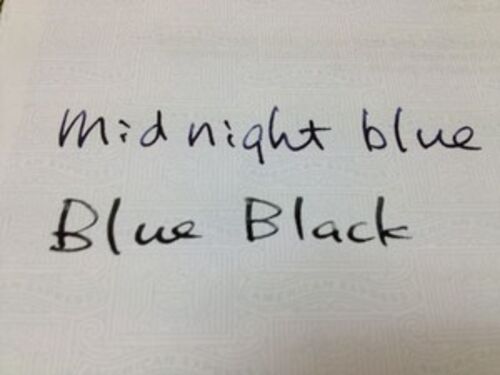 Midnight blue
Blue Black